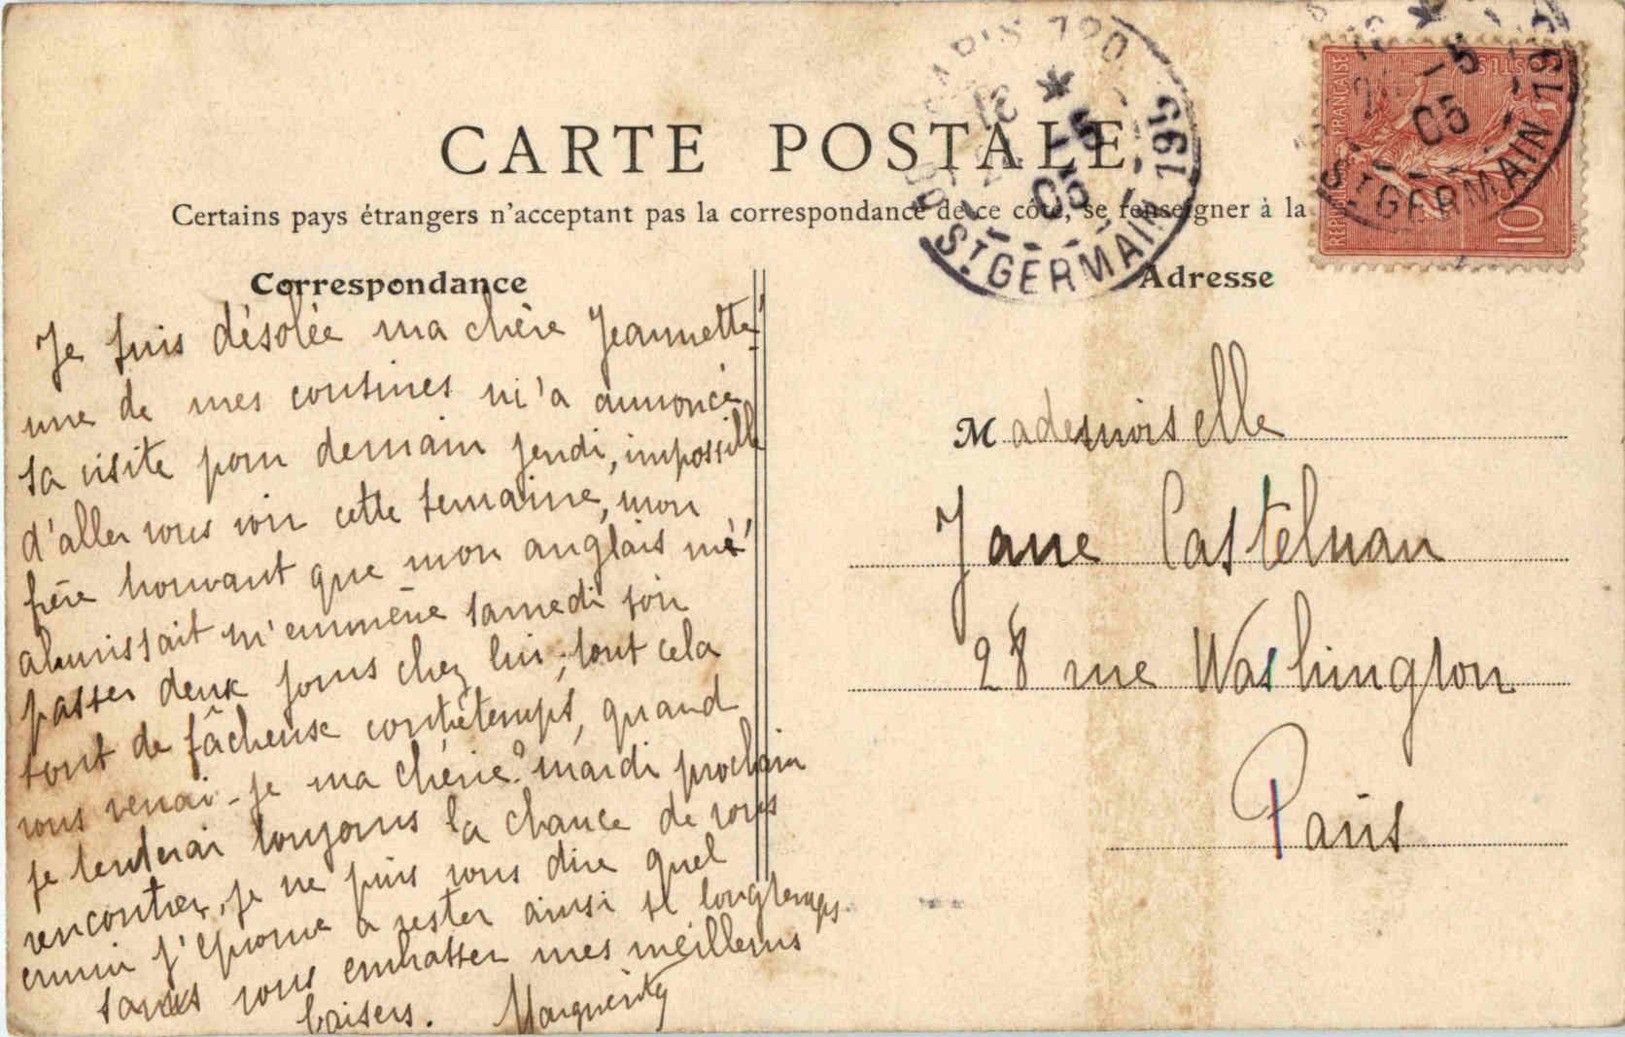 CARTE POSTALE
Certains pays étrangers n'acceptant pas la correspondance de ce côté, se renseigner à la
Correspondance
Je suis désolée ma chère Jeannette
une de mes cousines m'a annoncé
sa visite pour demain jeudi, impossible
d'aller vous voir cette semaine, mon
frère trouvant que mon anglais m'
ahurissait m'emmène samedi soir
passer deux jours chez lui; tout cela
sont de fâcheux contretemps, quand
vous verrai-je ma chérie? mardi prochain
je tenterai toujours la chance de vous
rencontrer, je ne puis vous dire quel
ennui j'éprouve à rester ainsi si longtemps
sans vous embrasser mes meilleurs
baisers. Marguerite
Adresse
Mademoiselle
Jane Castelnau
28 rue Washington
Paris
PARIS 120
5
05
ST GERMAIN 195
REPUBLIQUE FRANÇAISE
POSTES
10
5
05
ST GERMAIN 19